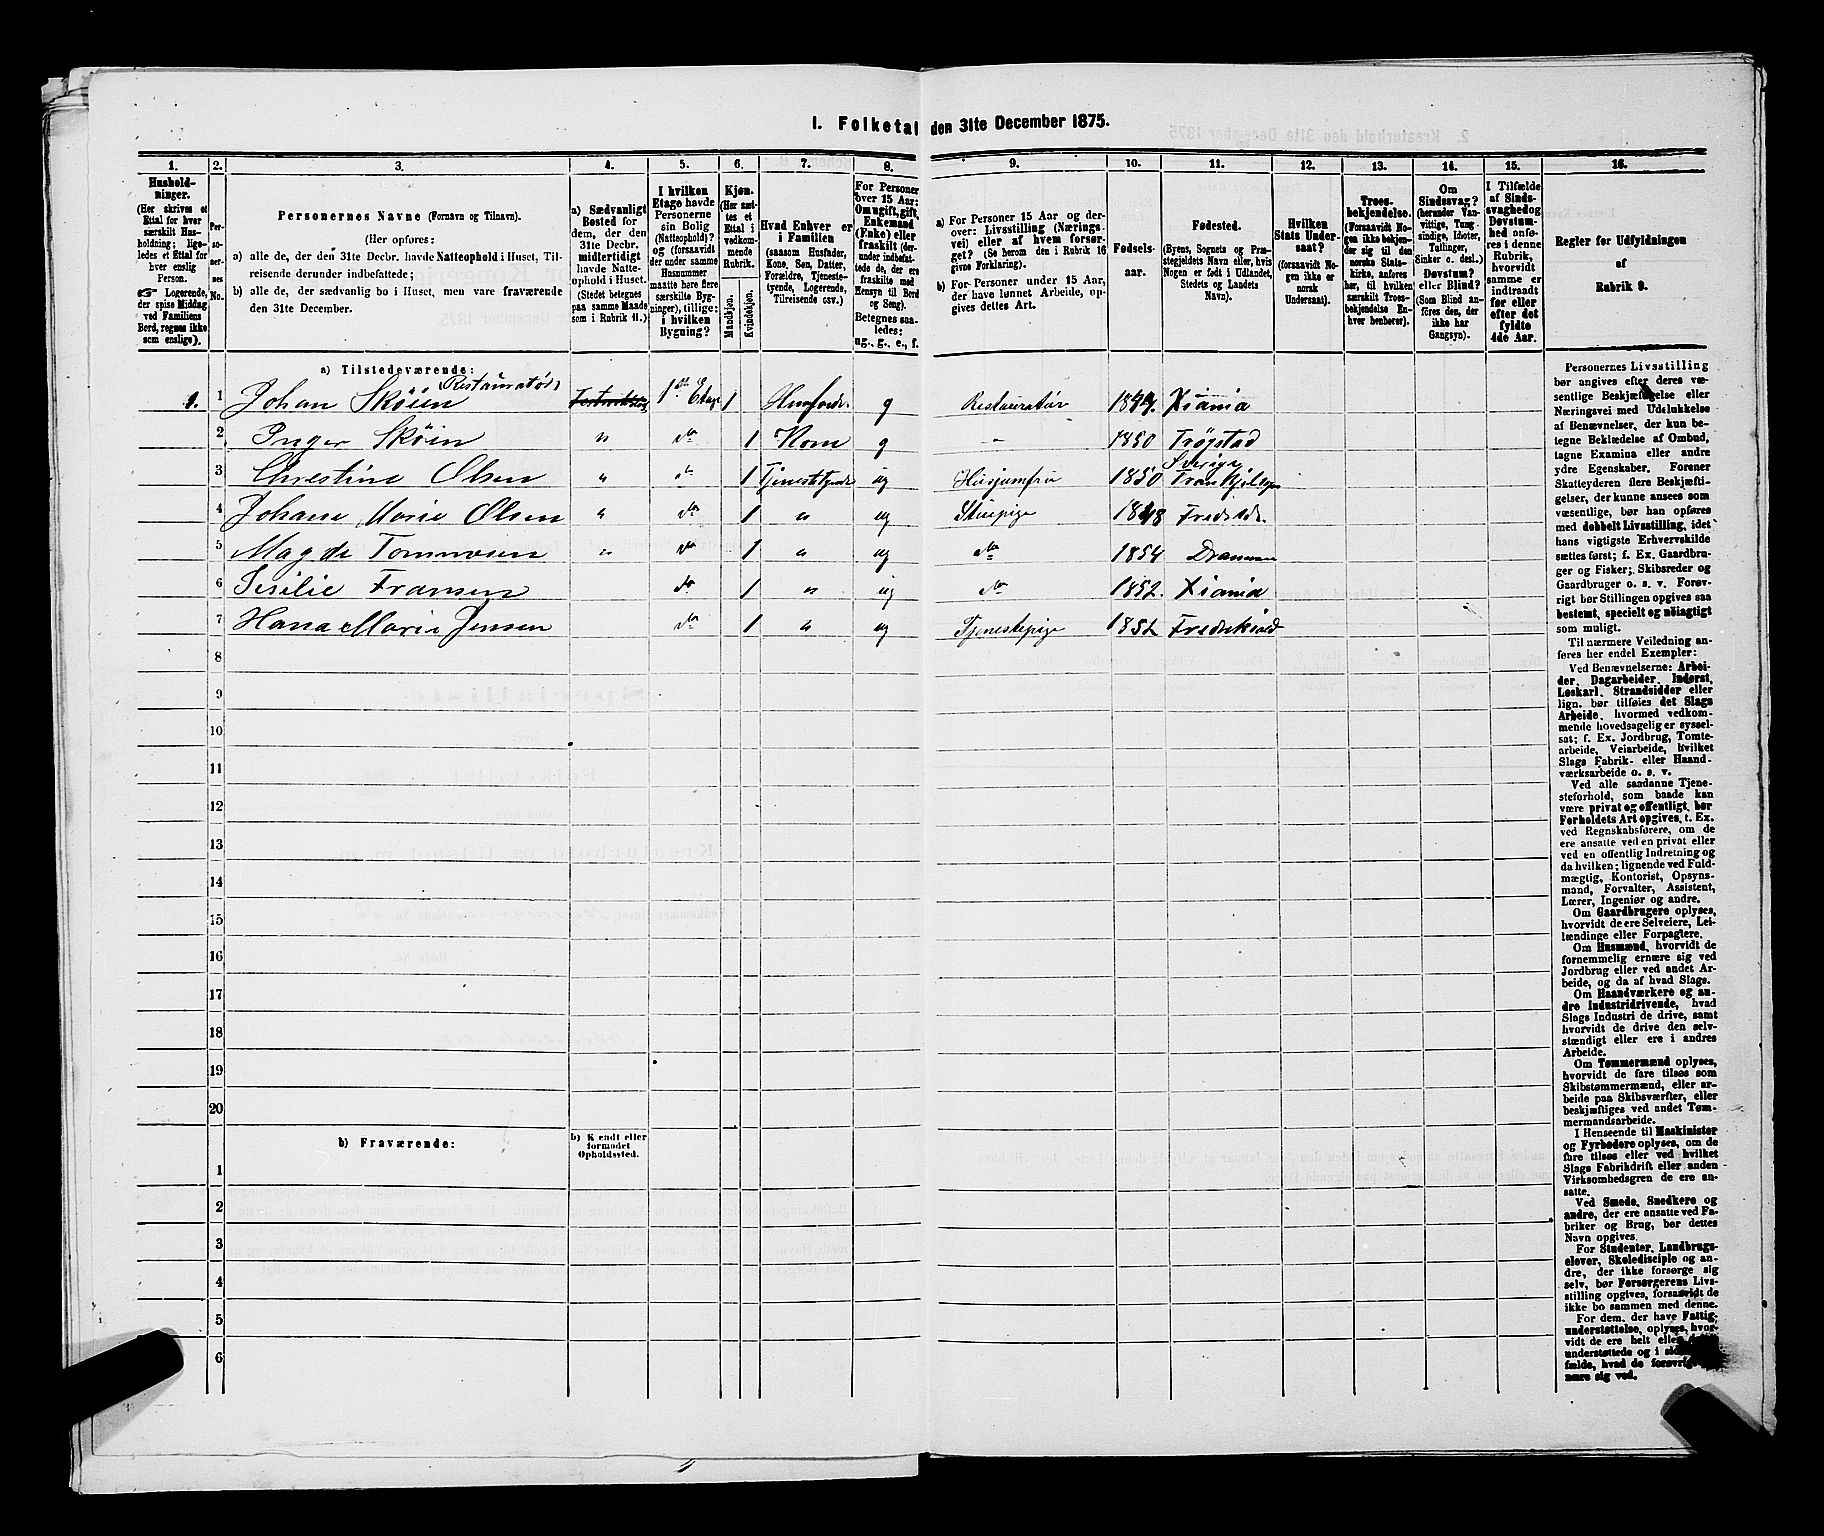 I. Folketal den 31te December 1875.
1. 2. 3. 4. 5. 6. 7. 8. 9. 10. 11. 12. 13. 14. 15. 16.
Hushold-
ninger.
(Her skrives et
Ettal for hver
særskilt Hus-
holdning; lige-
ledes et Ettal for
hver enslig
Person.
☞ Logerende,
der spise Middag
ved Familiens
Bord, regnes ikke
som enslige).
Per-
so-
ner-
nes
No.
Personernes Navne (Fornavn og Tilnavn).
(Her opføres:
a) alle de, der den 31te Decbr. havde Natteophold i Huset, Til-
reisende derunder indbefattede;
b) alle de, der sædvanlig bo i Huset, men vare fraværende
den 31te December.
a) Sædvanligt
Bosted for
dem, der den
31te Decbr.
midlertidigt
havde Natte-
ophold i Huset.
(Stedet betegnes
paa samme Maade
som i Rubrik 11.)
I hvilken
Etage havde
Personerne
sin Bolig
(Natteophold)?
og (forsaavidt
der under samme
Husnummer
maatte høre flere
særskilte Byg-
ninger), tillige:
i hvilken
Bygning?
Kjøn.
(Her sæt-
tes et
Ettal i
vedkom-
mende
Rubrik.
Mandkjøn.
Kvindekjøn.
Hvad Enhver er
i Familien
(saasom Husfader,
Kone, Søn, Datter,
Forældre, Tjeneste-
tyende, Logerende,
Tilreisende osv.)
For Personer
over 15 Aar:
Om ugift, gift,
Enkemand
(Enke) eller
fraskilt (der-
under indbefat-
tede de, der ere
fraskilte med
Hensyn til Bord
og Seng).
Betegnes saa-
ledes:
ug., g., e., f.
a) For Personer 15 Aar og der-
over: Livsstilling (Nærings-
vei) eller af hvem forsør-
get? (Se herom den i Rubrik 16
givne Forklaring).
b) For Personer under 15 Aar,
der have lønnet Arbeide, op-
gives dettes Art.
Fødsels-
aar.
Fødested.
(Byens, Sognets og Præ-
stegjeldets Navn eller, hvis
Nogen er født i Udlandet,
Stedets og Landets
Navn).
Hvilken
Stats Under-
saat?
(forsaavidt No-
gen ikke er
norsk
Undersaat).
Troes-
bekjendelse.
(Forsaavidt No-
gen ikke bekjen-
der sig til den
norske Stats-
kirke, anføres
her, til hvilken
særskilt Troes-
bekjendelse En-
hver henhører).
Om
Sindssvag?
(herunder Van-
vittige, Tung-
sindige, Idioter,
Tullinger,
Sinker o. desl.)
Døvstum?
eller Blind?
(Som Blind an-
føres den, der
ikke har
Gangsyn).
I Tilfælde
af Sinds-
svaghed og
Døvstum-
hed anfø-
res i denne
Rubrik,
hvorvidt
samme er
indtraadt
før eller
efter det
fyldte
4de Aar.
Regler for Udfyldningen
af
Rubrik 9.
a) Tilstedeværende:
1. 1 Johan Skøien Restauratør 1ste Etage 1 Husfader g Restauratør 1844. Xiania
2 Inger Skøien " do 1 Kone g — 1850 Trøgstad
3 Chrestine Olsen " do 1 Tjenestetyende ug Husjomfru 1850 Sverige
4 Johane Marie Olsen " do 1 " ug Stuepige 1848 Fredriksh.
5 Magda Tommesen " do 1 " ug do 1854 Drammen
6 Sesilie Fransen do 1 " ug do 1852. Xiania
7 Hana Marie Jensen do 1 " ug Tjenestepige 1852 Fredrikshald
8
9
10
11
12
13
14
15
16
17
18
19
20
b) Fraværende:
b) Kjendt eller
formodet
Opholdssted.
1
2
3
4
5
6
Personernes Livsstilling
bør angives efter deres væ-
sentlige Beskjæftigelse eller
Næringsvei med Udelukkelse
af Benævnelser, der kun be-
tegne Beklædelse af Ombud,
tagne Examina eller andre
ydre Egenskaber. Forener
Skatteyderen flere Beskjæfti-
gelser, der kunne ansees som
væsentlige, bør han opføres
med dobbelt Livsstilling, idet
hans vigtigste Erhvervskilde
sættes først; f. Ex. Gaardbru-
ger og Fisker; Skibsreder og
Gaardbruger o. s. v. Forøv-
rigt bør Stillingen opgives saa
bestemt, specielt og nøiagtigt
som muligt.
Til nærmere Veiledning an-
føres her endel Exempler:
Ved Benævnelserne: Arbei-
der, Dagarbeider, Inderst,
Løskarl, Strandsidder eller
lign. bør tilføies det Slags
Arbeide, hvormed vedkom-
mende hovedsagelig er syssel-
sat; f. Ex. Jordbrug, Tomte-
arbeide, Veiarbeide, hvilket
Slags Fabrik- eller Haand-
værksarbeide o. s. v.
Ved alle saadanne Tjene-
steforhold, som baade kan
være privat og offentligt, bør
Forholdets Art opgives, t. Ex.
ved Regnskabsførere, om de
ere ansatte ved en privat eller
ved en offentlig Indretning og
da hvilken; lignende ved Fuld-
mægtig, Kontorist, Opsyns-
mand, Forvalter, Assistent,
Lærer, Ingeniør og andre.
Om Gaardbrugere oplyses,
hvorvidt de ere Selveiere, Lei-
lændinge eller Forpagtere.
Om Husmænd, hvorvidt de
fornemmelig ernære sig ved
Jordbrug eller ved andet Ar-
beide, og da af hvad Slags.
Om Haandværkere og an-
dre Industridrivende, hvad
Slags Industri de drive, samt
hvorvidt de drive den selv-
stændigt eller ere i andres
Arbeide.
Om Tømmermænd oplyses,
hvorvidt de fare tilsøs som
Skibstømmermænd, eller ar-
beide paa Skibsværfter, eller
beskjæftiges ved andet Tøm-
mermandsarbeide.
I Henseende til Maskinister
og Fyrbødere oplyses, om de
fare tilsøs eller ved hvilket
Slags Fabrikdrift eller anden
Virksomhedsgren de ere an-
satte.
Ved Smede, Snedkere og
andre, der ere ansatte ved Fa-
briker og Brug, bør dettes
Navn opgives.
For Studenter, Landbrugs-
elever, Skoledisciple og an-
dre, der ikke forsørge sig
selv, bør Forsørgerens Livs-
stilling opgives, forsaavidt de
ikke bo sammen med denne.
For dem, der have Fattig-
understøttelse, oplyses, hvor-
vidt de ere helt eller
understøttede og i
fælde, hvad de forøvrigt
nære sig ved.